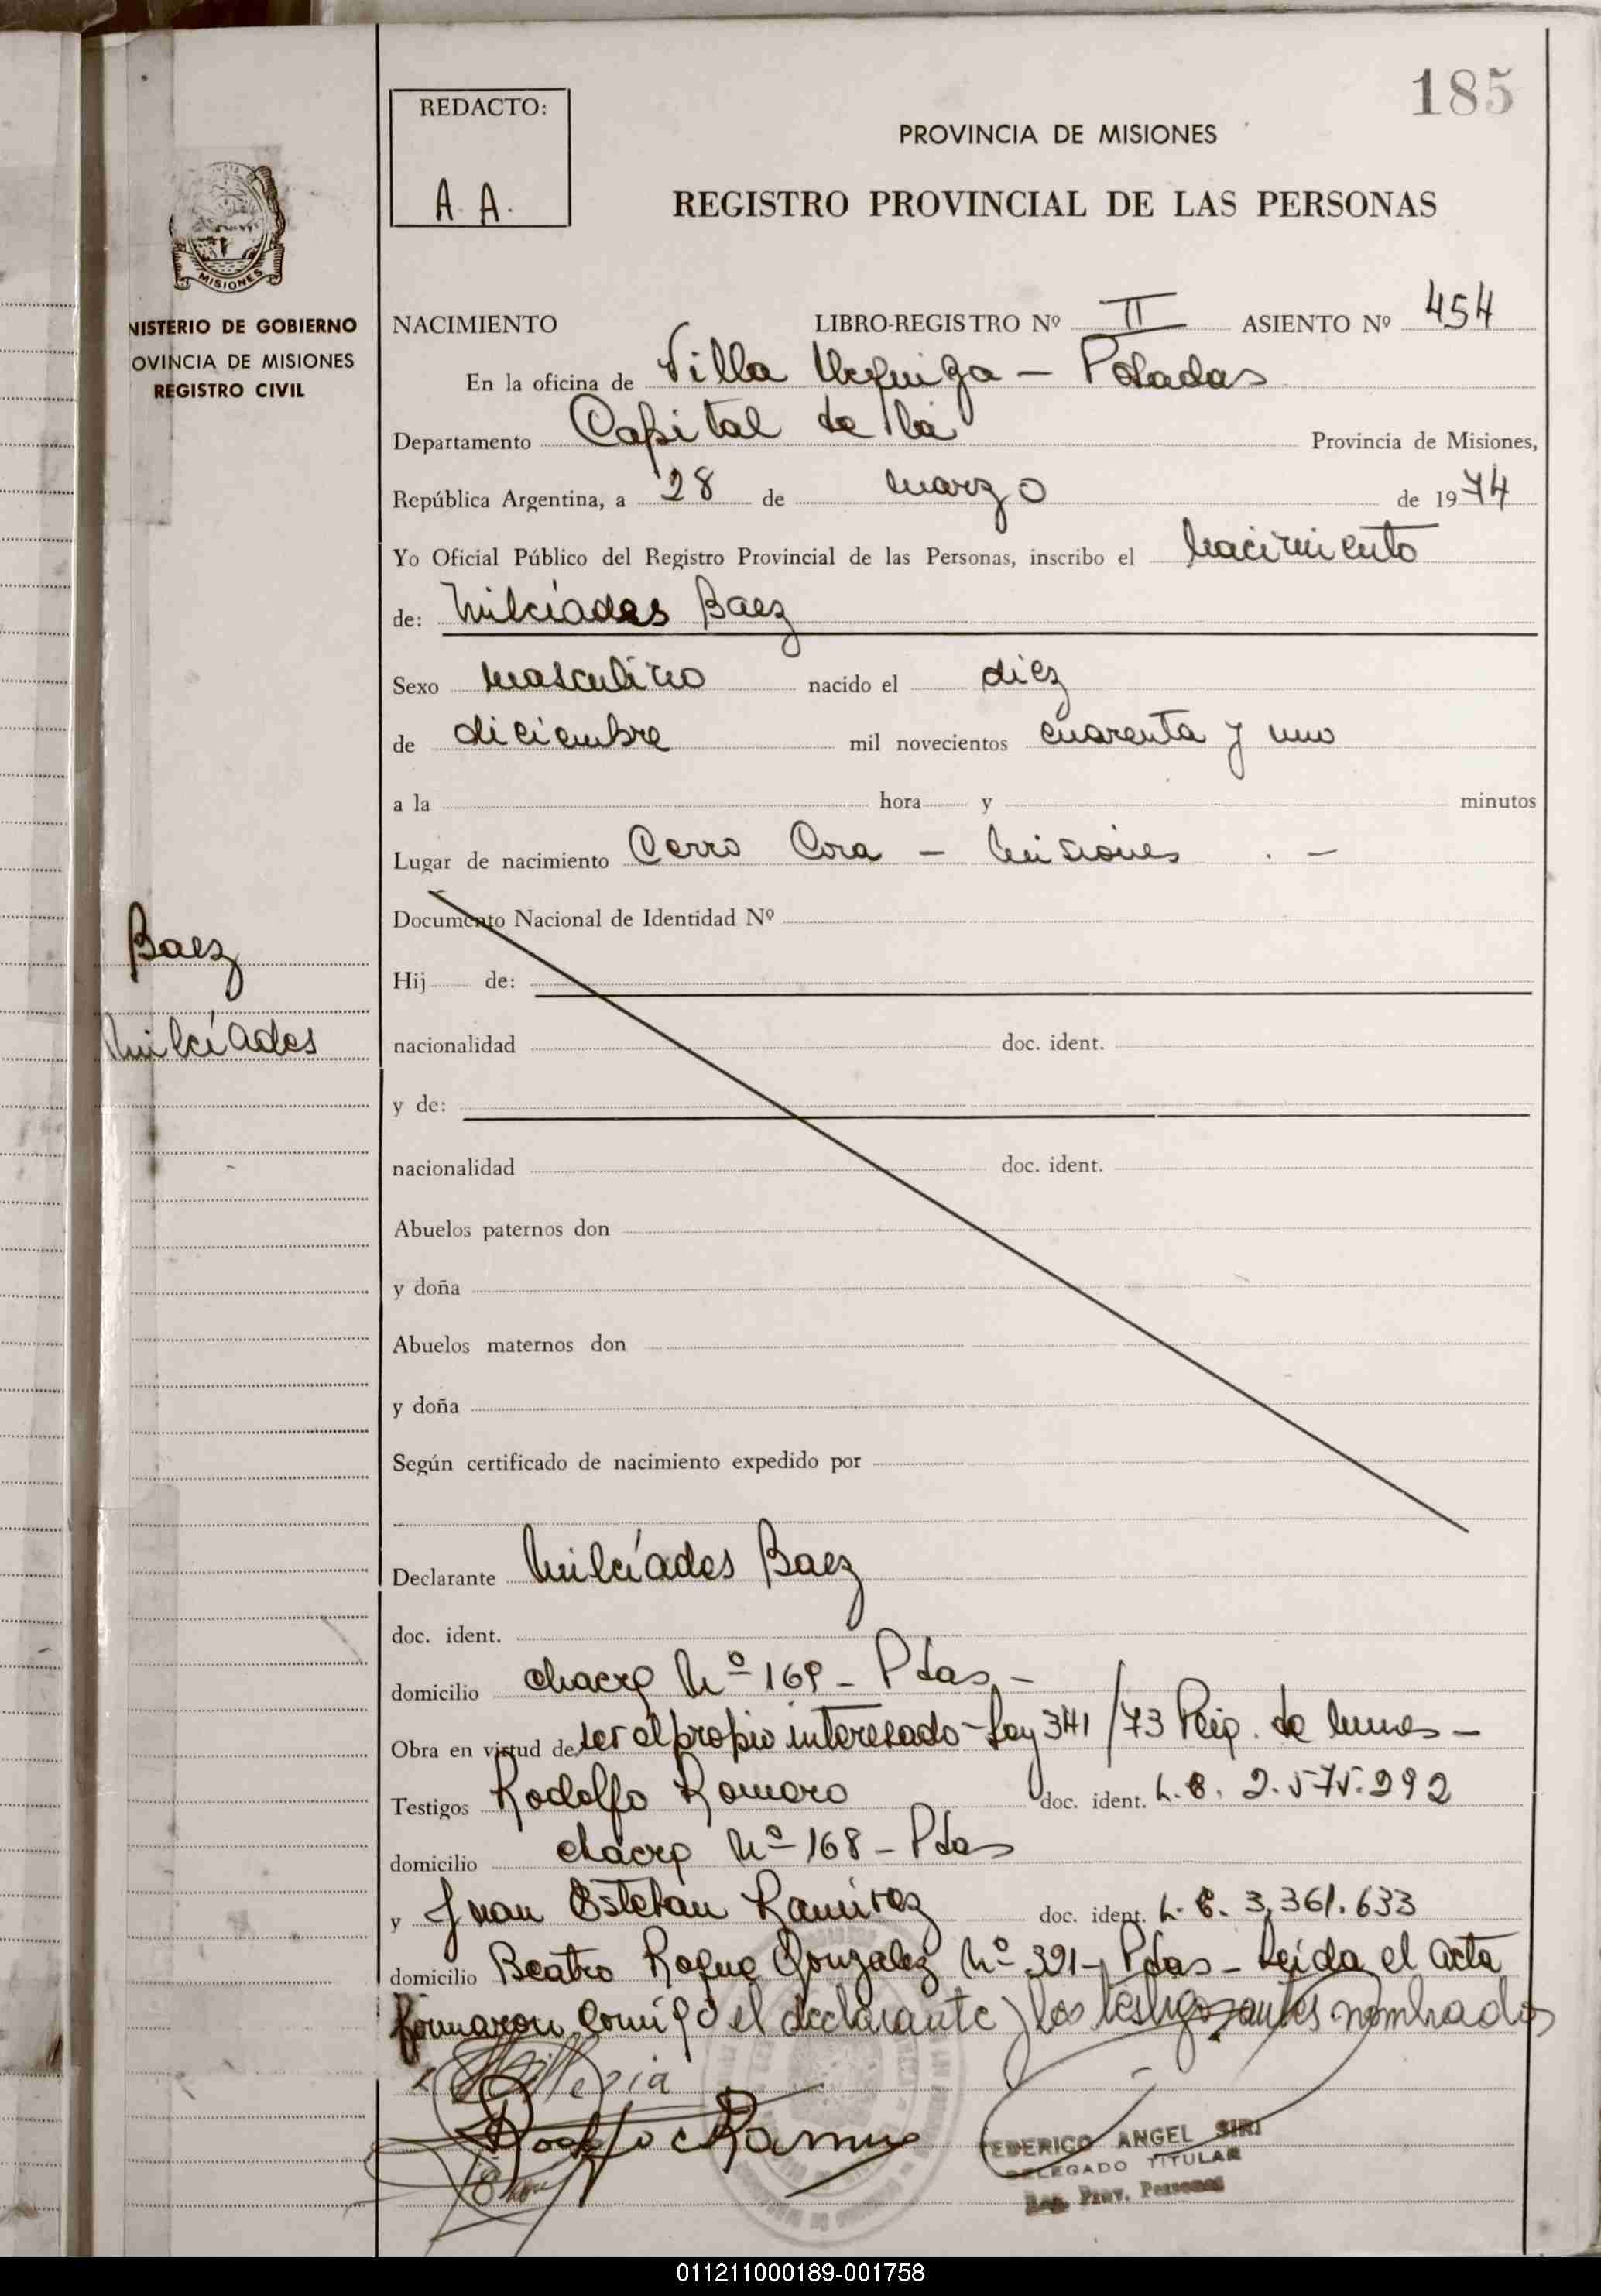 185
REDACTO:
A. A.
PROVINCIA DE MISIONES
REGISTRO PROVINCIAL DE LAS PERSONAS
MISIONES
NISTERIO DE GOBIERNO
OVINCIA DE MISIONES
REGISTRO CIVIL
NACIMIENTO LIBRO-REGISTRO Nº II ASIENTO Nº 454
En la oficina de Villa Urquiza – Posadas
Departamento Capital de la Provincia de Misiones,
República Argentina, a 28 de marzo de 1974
Yo Oficial Público del Registro Provincial de las Personas, inscribo el nacimiento
de: Milcíades Baez
Sexo masculino nacido el diez
de diciembre mil novecientos cuarenta y uno
a la hora y minutos
Lugar de nacimiento Cerro Cora – Misiones . –
Documento Nacional de Identidad Nº
Baez
Milcíades
Hij de:
nacionalidad doc. ident.
y de:
nacionalidad doc. ident.
Abuelos paternos don
y doña
Abuelos maternos don
y doña
Según certificado de nacimiento expedido por
Declarante Milcíades Baez
doc. ident.
domicilio chacra Nº 169 – Pdas –
Obra en virtud de ser el propio interesado – Ley 341/73 de
Testigos Rodolfo Romero doc. ident. L. E. 2.575.292
domicilio chacra Nº 168 – Pdas
y Juan Esteban Ramírez doc. ident. L. E. 3,361.633
domicilio Beatro Roque Gonzalez Nº 391 – Pdas – Leida el acta
firmaron comigo el declarante y los testigos antes nombrados
FEDERICO ANGEL SIRI
DELEGADO TITULAR
Reg. Prov. Personas
011211000189-001758